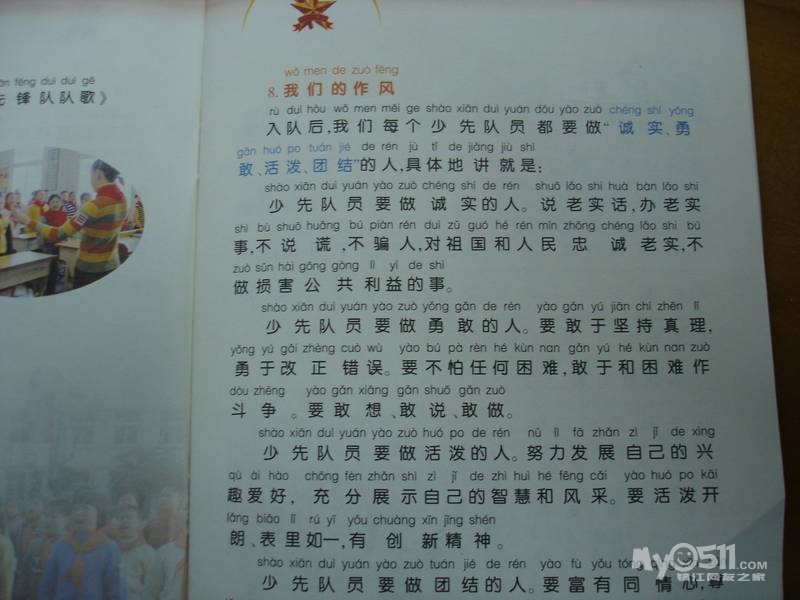 fēng duì duì gē
先锋队队歌》
wǒ men de zuò fēng
8.我们的作风
rù duì hòu wǒ men měi ge shào xiān duì yuán dōu yào zuò chéng shí yǒng
入队后,我们每个少先队员都要做“诚实、勇
gǎn huó po tuán jié de rén jù tǐ de jiǎng jiù shì
敢、活泼、团结”的人,具体地讲就是:
shào xiān duì yuán yào zuò chéng shí de rén shuō lǎo shi huà bàn lǎo shi
少先队员要做诚实的人。说老实话,办老实
shì bù shuō huǎng bú piàn rén duì zǔ guó hé rén mín zhōng chéng lǎo shi bú
事,不说谎,不骗人,对祖国和人民忠诚老实,不
zuò sǔn hài gōng gòng lì yì de shì
做损害公共利益的事。
shào xiān duì yuán yào zuò yǒng gǎn de rén yào gǎn yú jiān chí zhēn lǐ
少先队员要做勇敢的人。要敢于坚持真理,
yǒng yú gǎi zhèng cuò wù yào bú pà rèn hé kùn nan gǎn yú hé kùn nan zuò
勇于改正错误。要不怕任何困难,敢于和困难作
dòu zhēng yào gǎn xiǎng gǎn shuō gǎn zuò
斗争。要敢想、敢说、敢做。
shào xiān duì yuán yào zuò huó po de rén nǔ lì fā zhǎn zì jǐ de xìng
少先队员要做活泼的人。努力发展自己的兴
qù ài hào chōng fèn zhǎn shì zì jǐ de zhì huì hé fēng cǎi yào huó po kāi
趣爱好,充分展示自己的智慧和风采。要活泼开
lǎng biǎo lǐ rú yī yǒu chuàng xīn jīng shén
朗、表里如一,有创新精神。
shào xiān duì yuán yào zuò tuán jié de rén yào fù yǒu tóng
少先队员要做团结的人。要富有同情心,尊
My0511.com
镇江网友之家